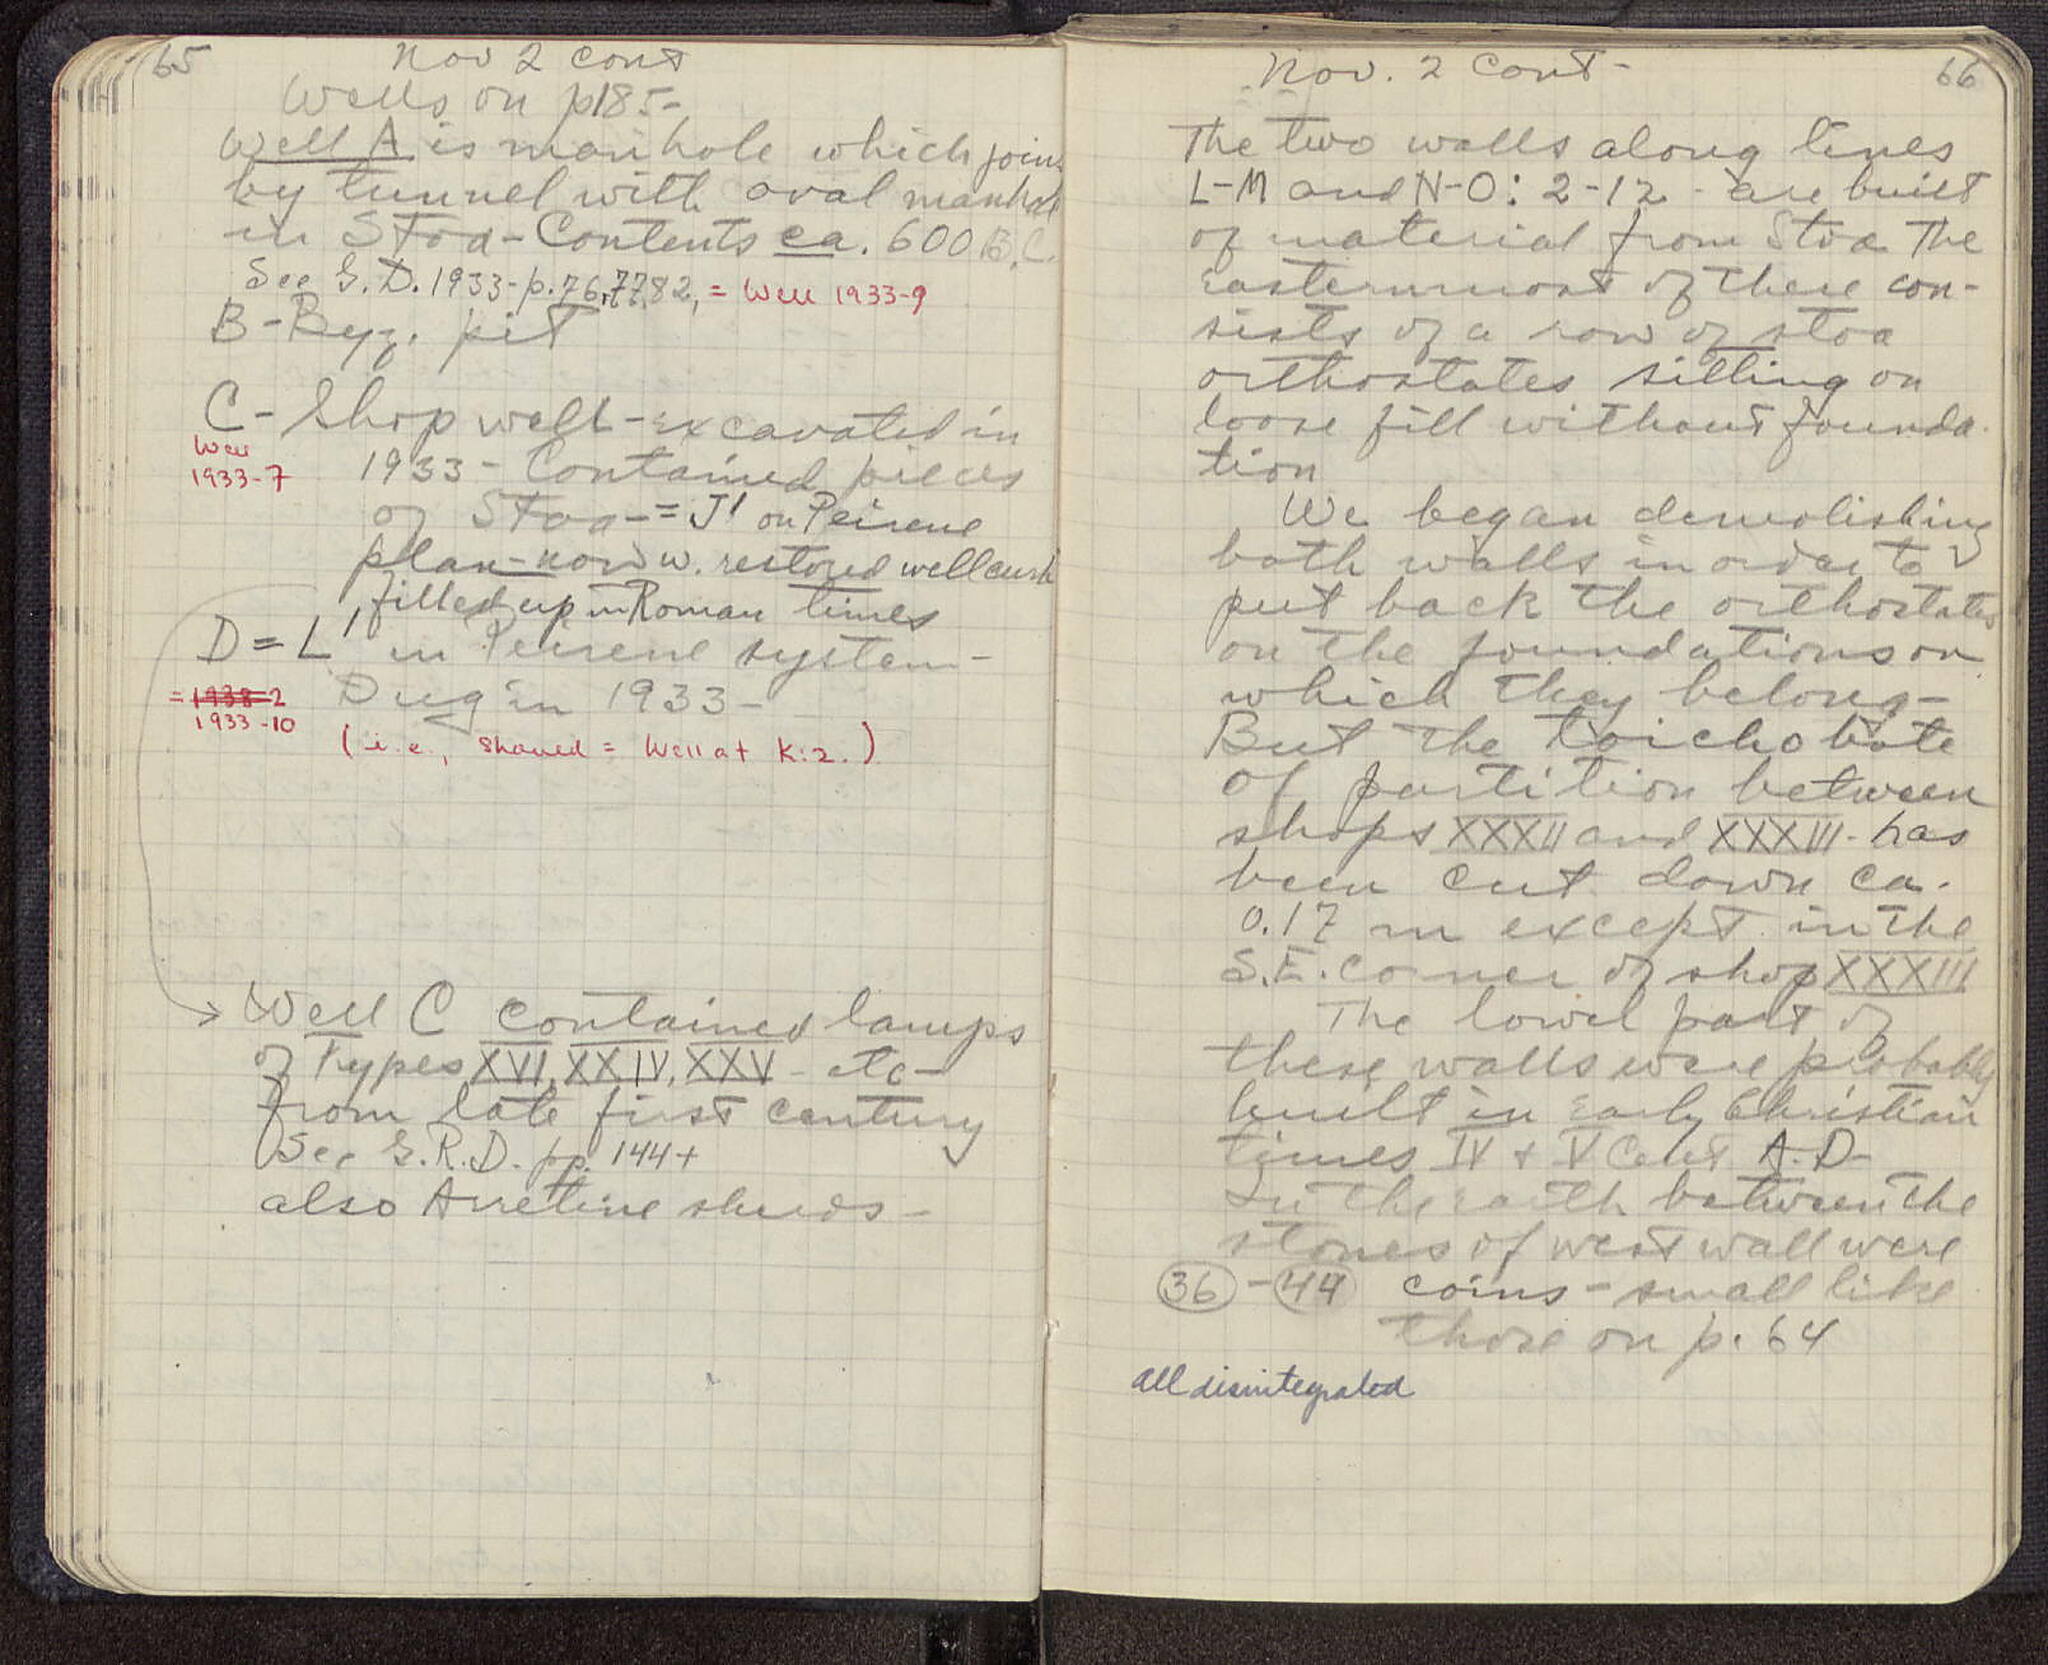 65
Nov 2 cont
Wells on p185-
Well A is manhole which joins
by tunnel with oval manhole
in Stoa - Contents ca. 600 B.C.
See G.D. 1933 - p. 76, 77, 82, = Well 1933-9
B - Byz. pit
C - Shop well - excavated in
Well
1933-7
1933 - Contained pieces
of Stoa - = J' on Peirene
plan - now w. restored wellcurb
filled up in Roman times
D = L' in Peirene system -
= 1938-2
1933-10
Dug in 1933 -
(i.e., Shaved = Well at K:2.)
→ Well C contained lamps
of types XVI, XXIV, XXV - etc -
from late first century
See G.R.D. pp. 144+
also Arretine sherds -
Nov. 2 cont -
66
The two walls along lines
L-M and N-O: 2-12 - are built
of material from Stoa The
easternmost of these con-
sists of a row of stoa
orthostates sitting on
loose fill without founda-
tion
We began demolishing
both walls in order to
put back the orthostates
on the foundations on
which they belong -
But the toichobate
of partition between
shops XXXII and XXXIII - has
been cut down ca.
0.17 m except in the
S.E. corner of shop XXXIII
The lower part of
these walls were probably
built in early Christian
times IV + V Cent A.D -
In the earth between the
stones of west wall were
36 - 44 coins - small like
those on p. 64
All disintegrated